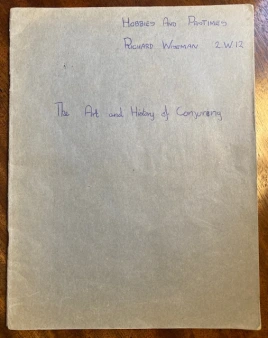 HOBBIES AND PASTIMES
RICHARD WISEMAN 2W12
The Art and History of Conjuring